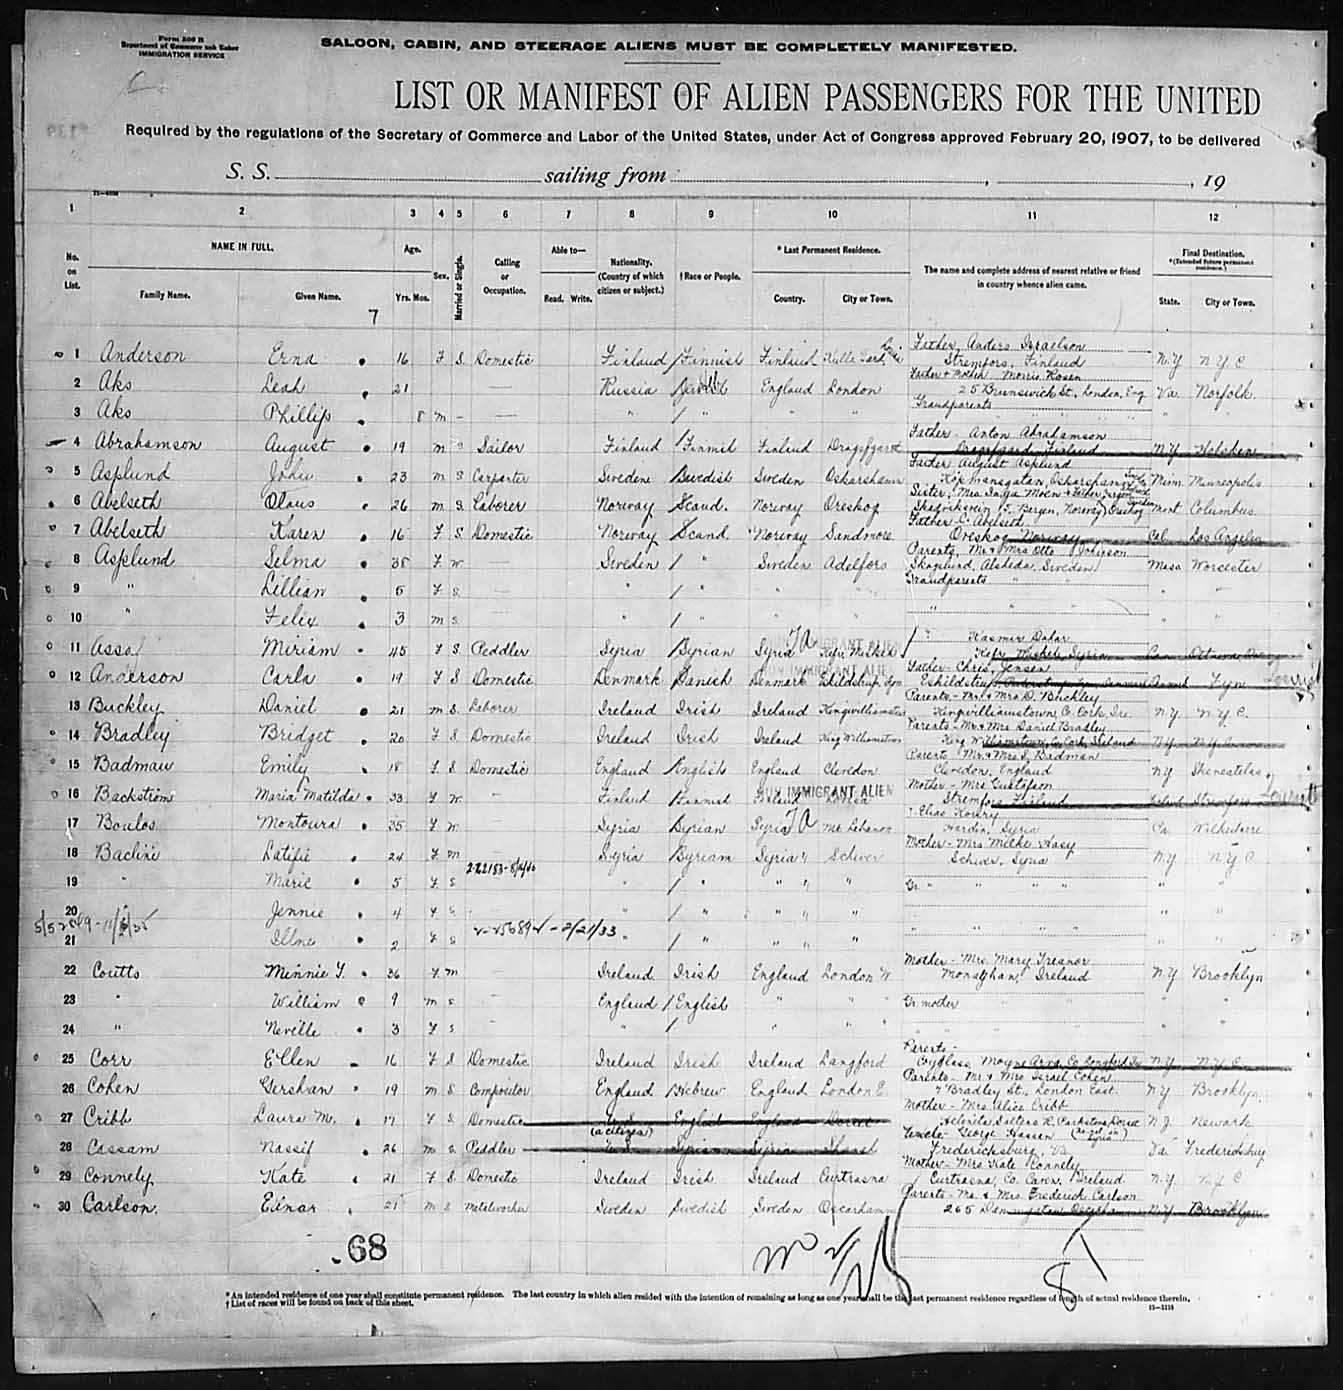 Form 500 B
Department of Commerce and Labor
IMMIGRATION SERVICE
SALOON, CABIN, AND STEERAGE ALIENS MUST BE COMPLETELY MANIFESTED.
LIST OR MANIFEST OF ALIEN PASSENGERS FOR THE UNITED
Required by the regulations of the Secretary of Commerce and Labor of the United States, under Act of Congress approved February 20, 1907, to be delivered
S. S. sailing from , , 19
1 2 3 4 5 6 7 8 9 10 11 12
No. on List.
NAME IN FULL.
Family Name. Given Name.
Age.
Yrs. Mos.
Sex.
Married or Single.
Calling or Occupation.
Able to—
Read. Write.
Nationality. (Country of which citizen or subject.)
† Race or People.
* Last Permanent Residence.
Country. City or Town.
The name and complete address of nearest relative or friend in country whence alien came.
Final Destination.
*(Intended future permanent residence.)
State. City or Town.
7
1 Anderson Erna 16 F S Domestic Finland Finnish Finland Father, Anders Israelson Stremfors, Finland N.Y N.Y.C
2 Aks Leah 21 — Russia England London Father & Mother Morris Rosen 25 Brunswick St., London, Eng Va. Norfolk.
3 Aks Phillip 8 m - — " / " " " Grandparents " " "
4 Abrahamson August 19 m S Sailor Finland Finnish Finland Dragsfjard Father - Anton Abrahamson Dragsfjard Finland N.Y Hoboken
5 Asplund John 23 m S Carpenter Sweden Swedish Sweden Oskarshamn Father August Asplund Kopmansgatan, Oskarshamn Minn. Minneapolis
6 Abelseth Olaus 26 m. S. Laborer Norway Scand. Norway Oreskog Sister, Mrs Inga Moen Bergen, Norway Mont Columbus.
7 Abelseth Karen 16 F S. Domestic Norway Scand Norway Sandmore Father C. Abelseth Oreskog Norway Cal Los Angeles
8 Asplund Selma 35 F. W — Sweden / " Sweden Adelfors Parents, Mr & Mrs Otto Johnson Skoglund, Alsheda, Sweden Mass Worcester
9 " Lillian 5 F. S. — " / " " " Grandparents " " " "
10 " Felix 3 m S. — " / " " " " " " "
11 Assaf Miriam 45 F S Peddler Syria Syrian Syria Kefr Mishki Kasmir Dahar Kefr Mishki, Syria Can Ottawa
NON IMMIGRANT ALIEN
12 Anderson Carla 19 F S Domestic Denmark Danish Denmark Father - Chris, Jensen Denmark Fyn
NON IMMIGRANT ALIEN
13 Buckley Daniel 21 m S. Laborer Ireland Irish Ireland Kingwilliamstown Parents - Mr. & Mrs D. Buckley Kingwilliamstown Co Cork, Ire. N.Y. N.Y.C.
14 Bradley Bridget 20 F S Domestic Ireland Irish Ireland King Williamstown Parents - Mr & Mrs Daniel Bradley King Williamstown, Co Cork, Ireland N.Y
15 Badman Emily 18 F. S Domestic England English England Clevedon Parents Mr. & Mrs S. Badman Clevedon, England N.Y Skeneatelas
16 Backstrom Maria Matilda 33 F W — Finland Finnish Finland Mother - Mrs Gustafson Stremfors Finland
NON IMMIGRANT ALIEN
17 Boulos Montoura 35 F W — Syria Syrian Syria Mt. Lebanon Elias Koury Hardin, Syria Pa. Wilkesbarre
18 Baclini Latifie 24 F. m — Syria Syrian Syria Schwer Mother - Mrs Melke Schwer, Syria N.Y N.Y C
19 " Marie 5 F. S " / " " " " " "
20 " Jennie 4 F. S " / " " " " " " " "
21 Illne 2 F S " / " " " "
2-25689 - 2/21/33
22 Coutts Minnie T. 36 F. m — Ireland Irish England London W. Mother - Mrs. Mary Treanor Monaghan, Ireland N.Y Brooklyn
23 " William 9 m S — England / English " " Gr. mother " " "
24 " Neville 3 F S — " / " " "
25 Corr Ellen 16 F S Domestic Ireland Irish Ireland Langford Parents - Corglass, Moyne Arva, Co Longford N.Y N.Y.C.
26 Cohen Gershan 19 m S Compositor England Hebrew England London E. Parents - Mr. & Mrs. Israel Cohen Bradley St., London East. N.Y Brooklyn
27 Cribb Laura M. 17 F S Domestic U.S. (a citizen) English England Dorset Mother - Mrs. Alice Cribb N.J. Newark
28 Cassam Nassif 26 m S Peddler U.S. Syrian Syria Uncle - George Hassan Fredericksburg, Va Va. Fredericksburg
29 Connely Kate 21 F S Domestic Ireland Irish Ireland Curtrasna Mother - Mrs Kate Connely Curtrasna, Co. Caven, Ireland N.Y. N.Y C
30 Carlson Einar 21 m S Metalworker Sweden Swedish Sweden Oscarhamn Parents - Mr. & Mrs. Frederick Carlson 265 N.Y Brooklyn
68
* An intended residence of one year shall constitute permanent residence. The last country in which alien resided with the intention of remaining as long as one year shall be the last permanent residence regardless of length of actual residence therein.
† List of races will be found on back of this sheet.